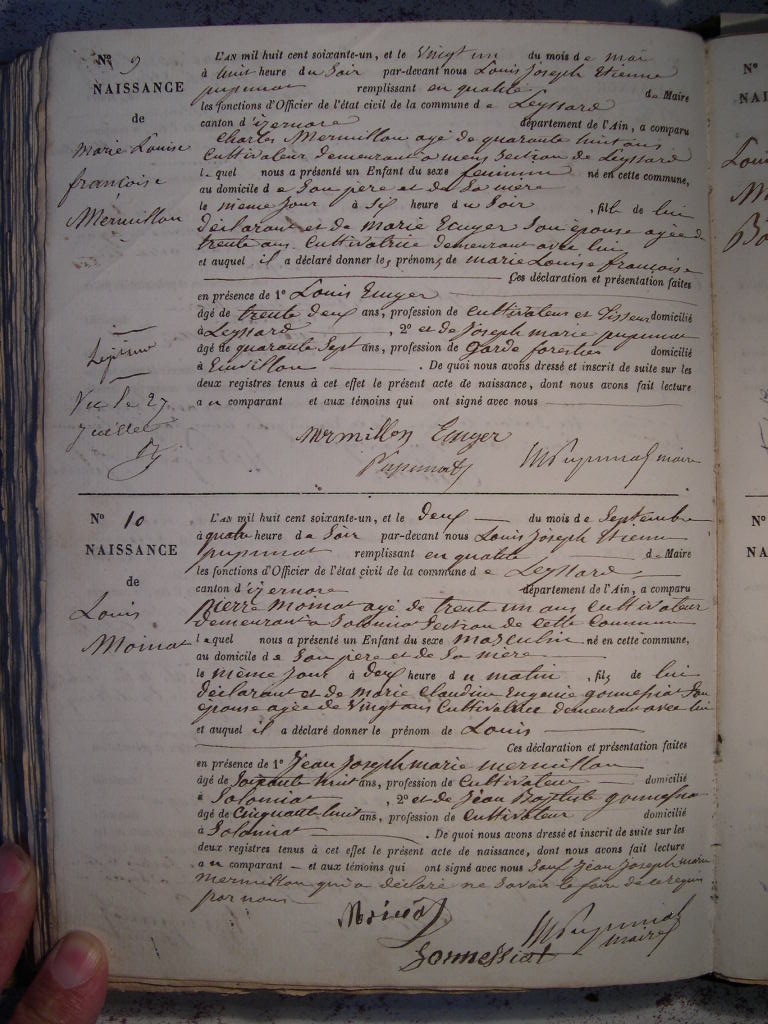 Nº 9
NAISSANCE
de
Marie Louise
françoise
Mermillon
Vu le 27
Juillet
L'AN mil huit cent soixante-un, et le Vingt un du mois de mai
à huit heure du Soir par-devant nous Louis Joseph Etienne
pupunat remplissant en qualité de Maire
les fonctions d'Officier de l'état civil de la commune de Leyssard
canton d'izernore département de l'Ain, a comparu
Charles Mermillon agé de quarante huit ans
Cultivateur demeurant a mens Section de Leyssard
lequel nous a présenté un Enfant du sexe feminin né en cette commune,
au domicile de Son pere et de Sa mere
le même jour à Six heure du Soir , fille de lui
déclarant et de Marie Ecuyer Son épouse agée de
trente ans Cultivatrice demeurant avec lui
et auquel il a déclaré donner les prénoms de marie Louise françoise
Ces déclaration et présentation faites
en présence de 1º Louis Ecuyer
âgé de trente deux ans, profession de Cultivateur et Tisseur domicilié
à Leyssard , 2º et de Joseph marie pupunat
âgé de quarante Sept ans, profession de Garde forestier domicilié
à . De quoi nous avons dressé et inscrit de suite sur les
deux registres tenus à cet effet le présent acte de naissance, dont nous avons fait lecture
au comparant et aux témoins qui ont signé avec nous
Mermillon Ecuyer
Pupunat Pupunat maire
Nº 10
NAISSANCE
de
Louis
Moinat
L'AN mil huit cent soixante-un, et le deux du mois de Septembre
à quatre heure de Soir par-devant nous Louis Joseph Etienne
pupunat remplissant en qualité de Maire
les fonctions d'Officier de l'état civil de la commune de Leyssard
canton d'izernore département de l'Ain, a comparu
pierre Moinat agé de trent un ans Cultivateur
demeurant a Solomiat Section de cette Commune
lequel nous a présenté un Enfant du sexe masculin né en cette commune,
au domicile de Son pere et de Sa mere
le même jour à deux heure du matin , fils de lui
déclarant et de marie Claudine Eugenie gonnessiat Son
épouse agée de Vingt ans Cultivatrice demeurant avec lui
et auquel il a déclaré donner le prénom de Louis
Ces déclaration et présentation faites
en présence de 1º Jean Joseph marie mermillon
âgé de Soixante huit ans, profession de Cultivateur domicilié
à Solomiat , 2º et de Jean Baptiste gonnessiat
âgé de Cinquante huit ans, profession de Cultivateur domicilié
à Solomiat . De quoi nous avons dressé et inscrit de suite sur les
deux registres tenus à cet effet le présent acte de naissance, dont nous avons fait lecture
au comparant et aux témoins qui ont signé avec nous Sauf Jean Joseph marie
mermillon qui a déclaré ne Savoir le faire de ce requis
par nous
Moinat
Gonnessiat Pupunat
maire
Nº
NAI
Nº
NA